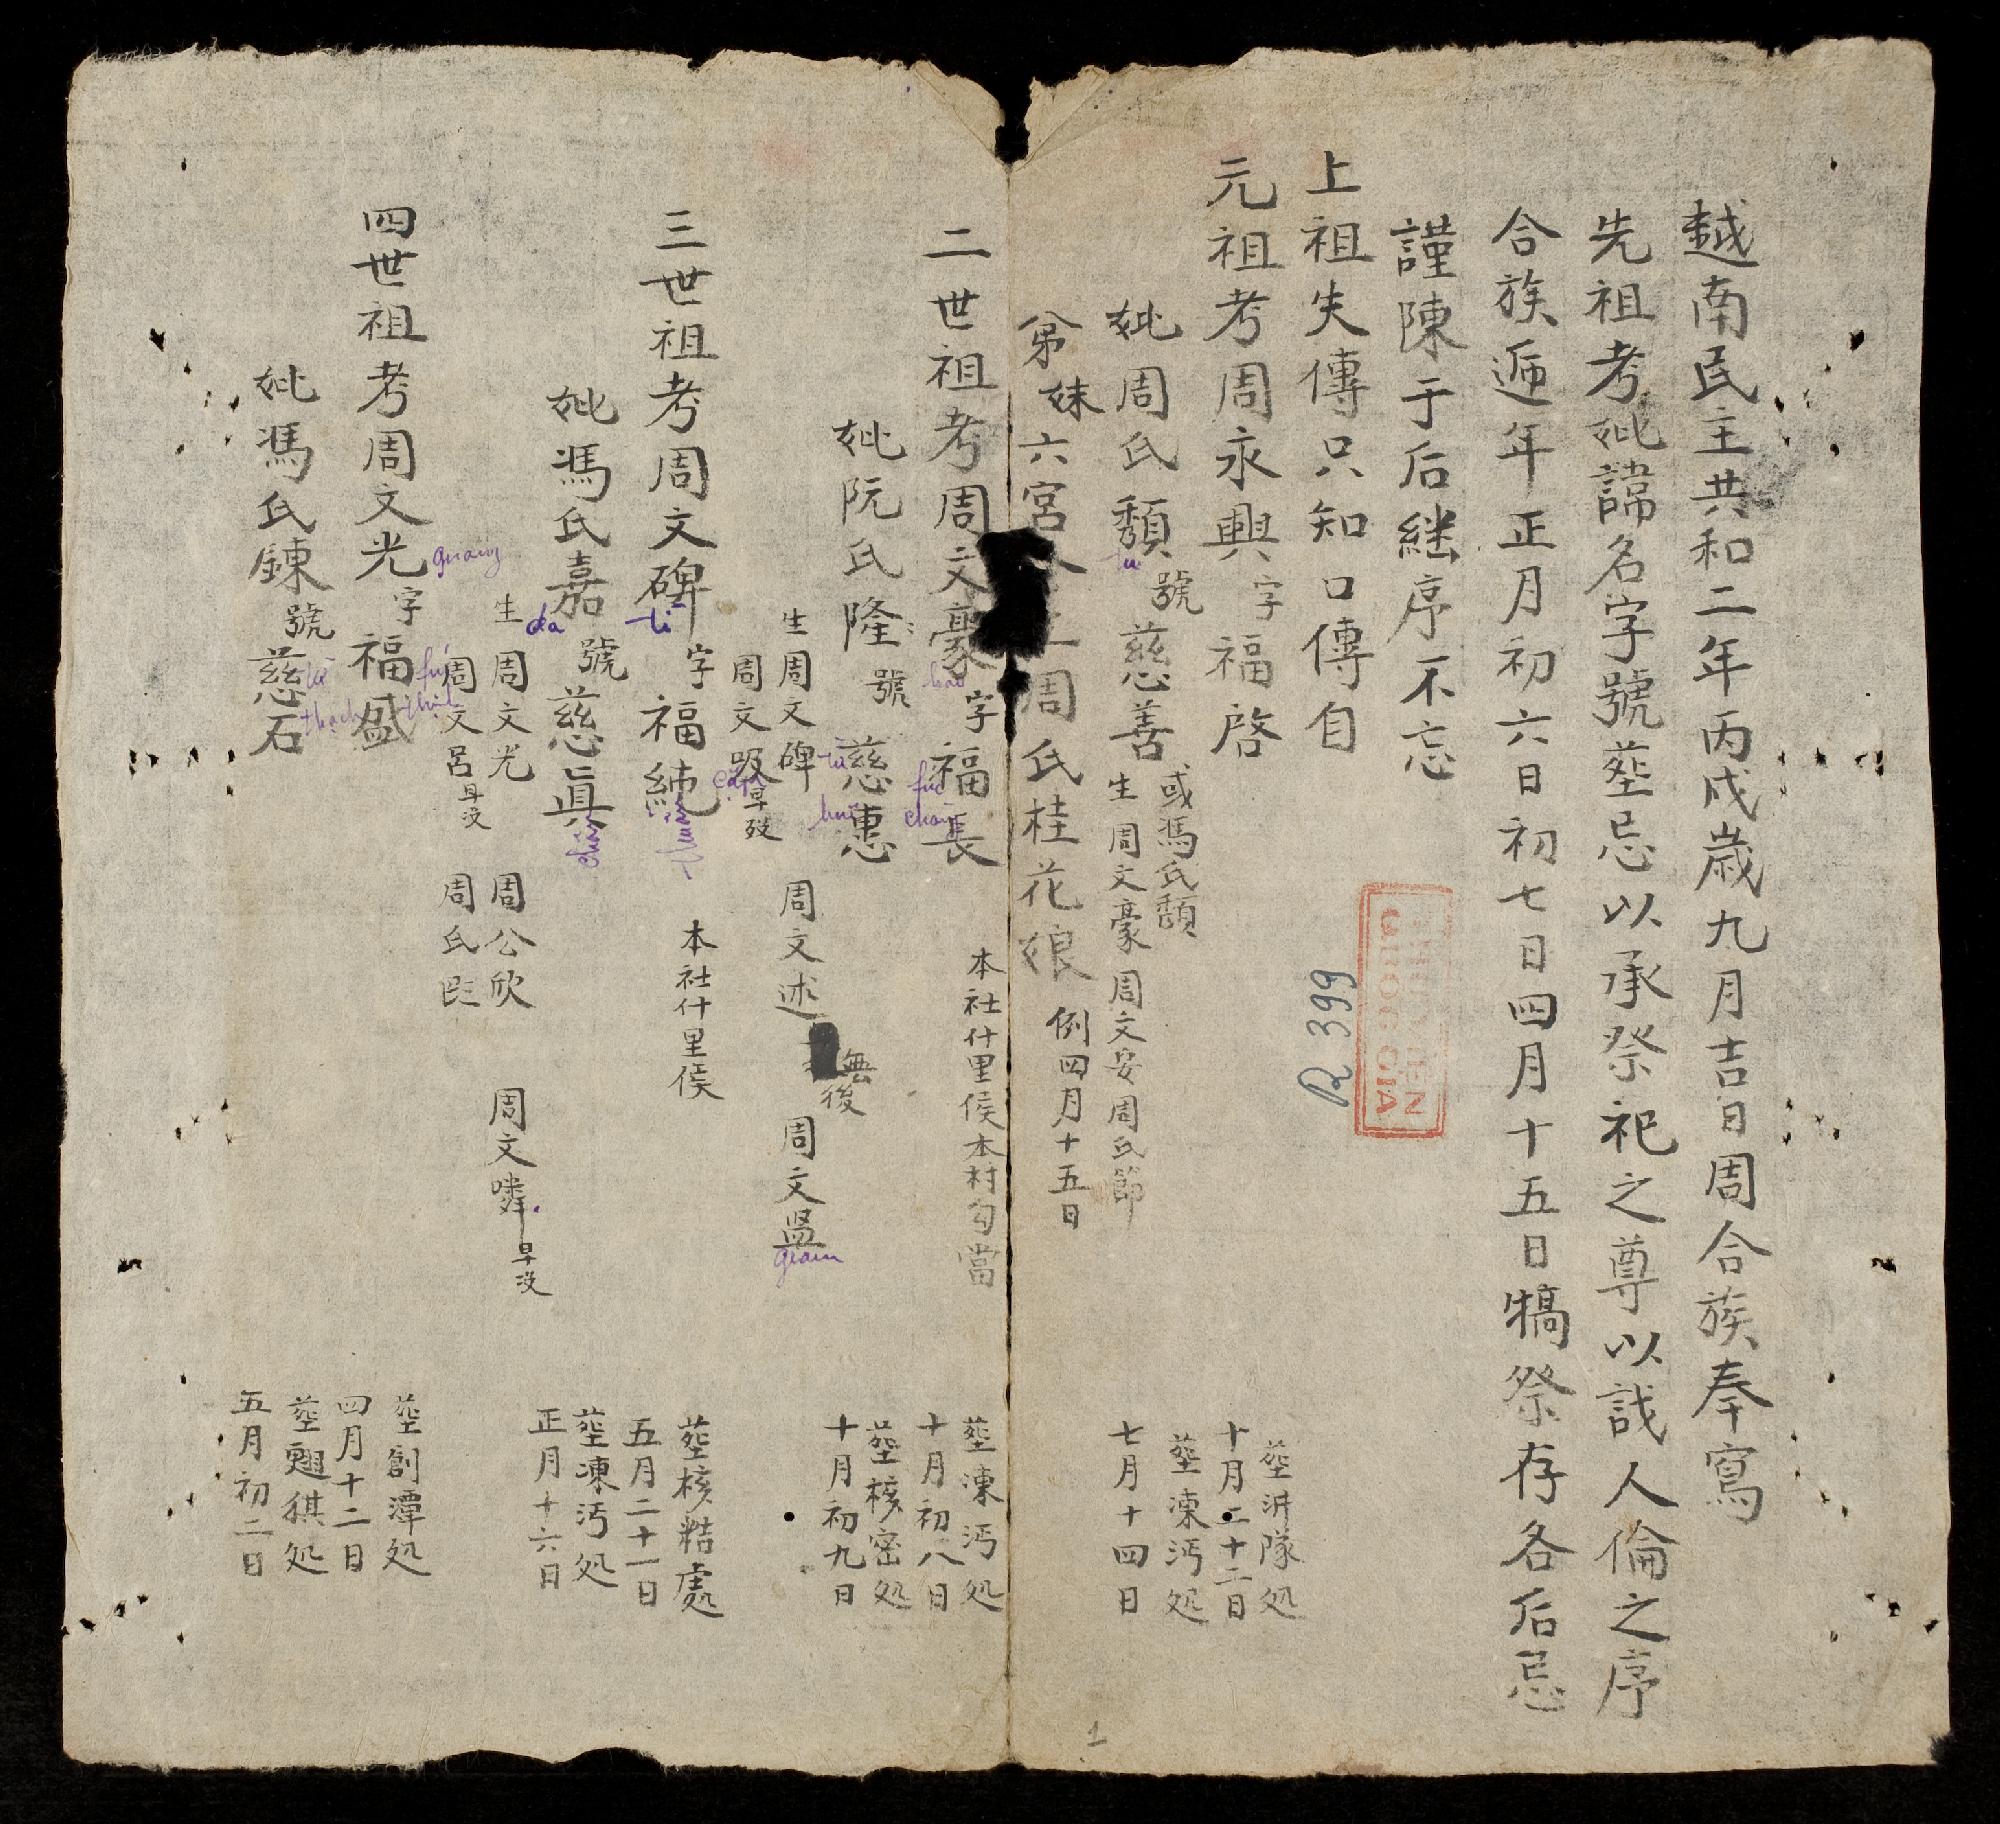 越南民主共和二年丙戌歲九月吉日周合族奉寫
先祖考妣諱名字號塟忌以承祭祀之尊以誠人倫之序
合族遞年正月初六日初七日四月十五日犒祭存各后忌
謹陳于后継序不忘
上祖失傳只知口傳自
元祖考周永興字福啓
塟汫隊处
十月二十二日
妣周氏頹號慈善
tu
或馮氏頹
生周文豪周文安周氏節
塟凍沔处
七月十四日
第妹六宮 周氏桂花娘例四月十五日
二世祖考周文豪字福長
hào
fúc
本社什里侯本村勾當
塟凍沔処
十月初八日
妣阮氏隆號慈惠
từ
huệ
塟核密処
十月初九日
生周文碑 周文述 無後 周文
giám
周文吸早歿
三世祖考周文碑字福純
本社什里侯
塟核精處
五月二十一日
妣馮氏嘉號慈眞
chân
塟凍沔処
正月十六日
生周文光 周公欣 周文嶙早没
周文呂早没 周氏
四世祖考周文光字福盛
quang
塟創潭処
四月十二日
妣馮氏鍊號慈石
từ
thạch
塟翹猉処
五月初二日
QUOC GIA
R 399
1